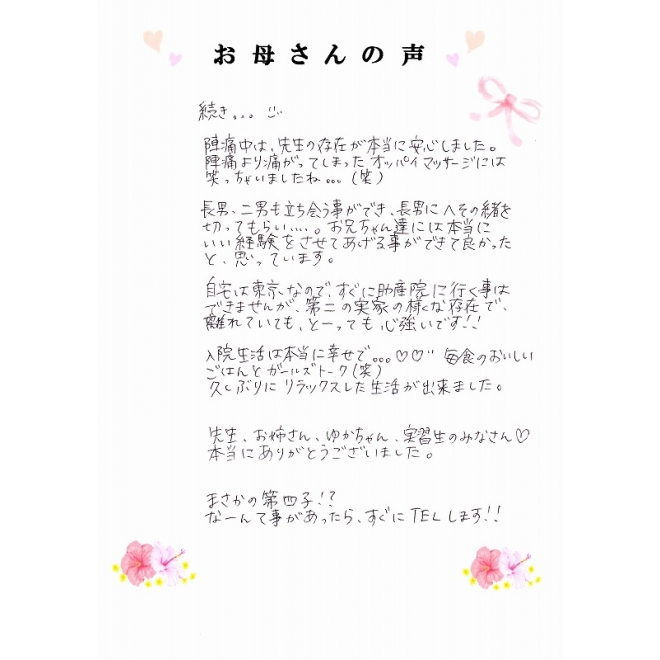 お母さんの声
続き。。。
陣痛中は、先生の存在が本当に安心しました。
陣痛より痛がってしまった オッパイマッサージには
笑っちゃいましたね。。。(笑)
長男、二男も立ち会う事ができ、長男に へその緒を
切ってもらい....。お兄ちゃん達には本当に
いい経験をさせてあげる事ができて良かった
と、思っています。
自宅は東京、なので、すぐに助産院に行く事は
できませんが、第二の実家の様な存在で、
離れていても、とーっても心強いです!!
入院生活は本当に幸せで。。。♡♡ 毎食のおいしい
ごはんとガールズトーク(笑)
久しぶりに リラックスした生活が出来ました。
先生、お姉さん、ゆかちゃん、実習生のみなさん♡
本当にありがとうございました。
まさかの第四子!?
なーんて事があったら、すぐに TELします!!